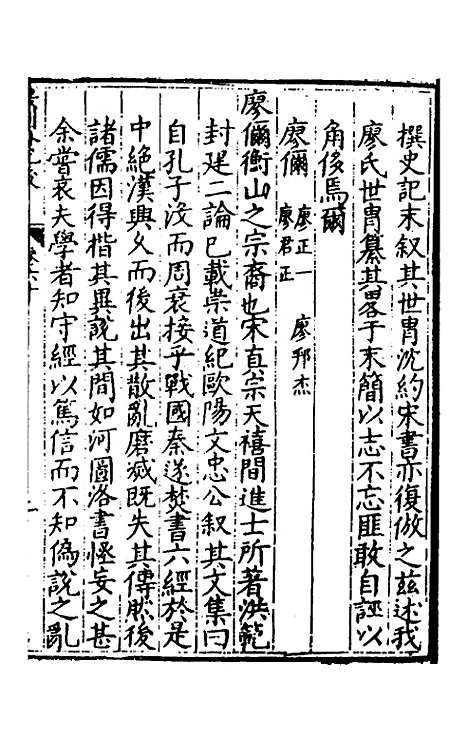 撰史記末叙其世胄沈約宋書亦復倣之兹述我
廖氏世胄纂其畧于末簡以志不忘匪敢自誣以
角俊焉爾
廖偁 廖正一 廖君正 廖邦杰
廖偁衡山之宗裔也宋真宗天禧間進士所著洪範
封建二論已載崇道紀歐陽文忠公叙其文集曰
自孔子没而周衰接乎戰國秦遂焚書六經於是
中絶漢興乆而後出其散亂磨滅既失其傳然後
諸儒因得措其異說其間如河圖洛書怪妄之甚
余嘗哀夫學者知守經以篤信而不知偽說之亂
卷六十